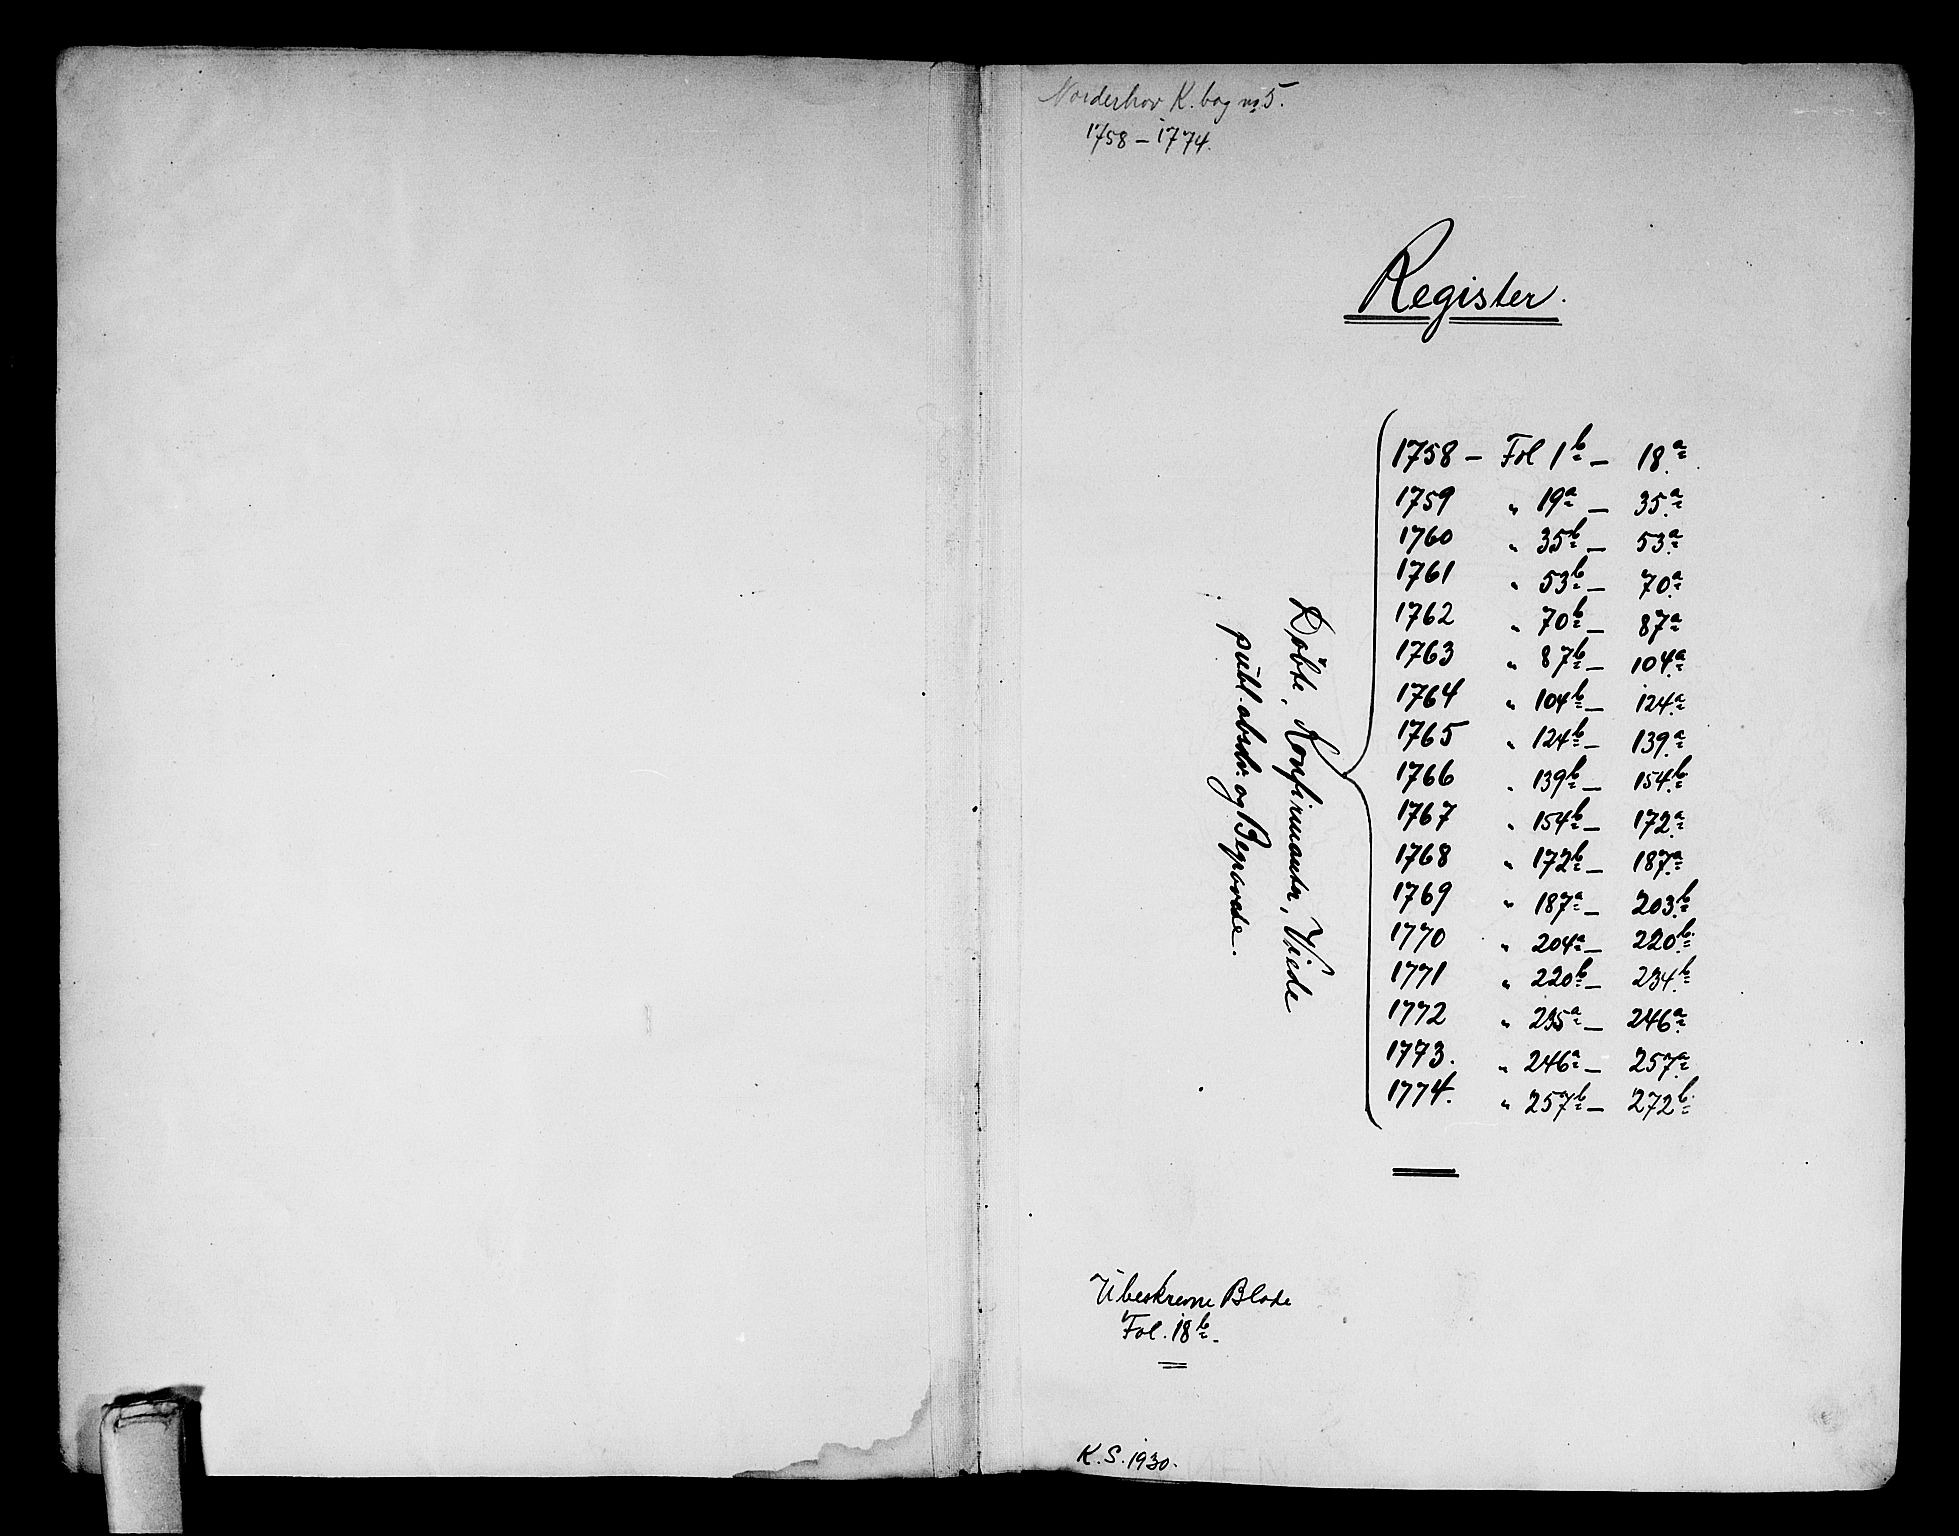 Norderhov K. bog no 5.
1758 – 1774.
Register.
Døbte, Konfirmanter, Viede
publ. absolv. og Begravede.
1758 – Fol 1b – 18a
1759 " 19a – 35a
1760 " 35b – 53a
1761 " 53b – 70a
1762 " 70b – 87a
1763 " 87b – 104a
1764 " 104b – 124a
1765 " 124b – 139a
1766 " 139b – 154b
1767 " 154b – 172a
1768 " 172b – 187a
1769 " 187a – 203b
1770 " 204a – 220b
1771 " 220b – 234b
1772 " 235a – 246a
1773. " 246a – 257a
1774. " 257b – 272b
Ubeskrevne Blade
Fol. 18b.
K. S. 1930.